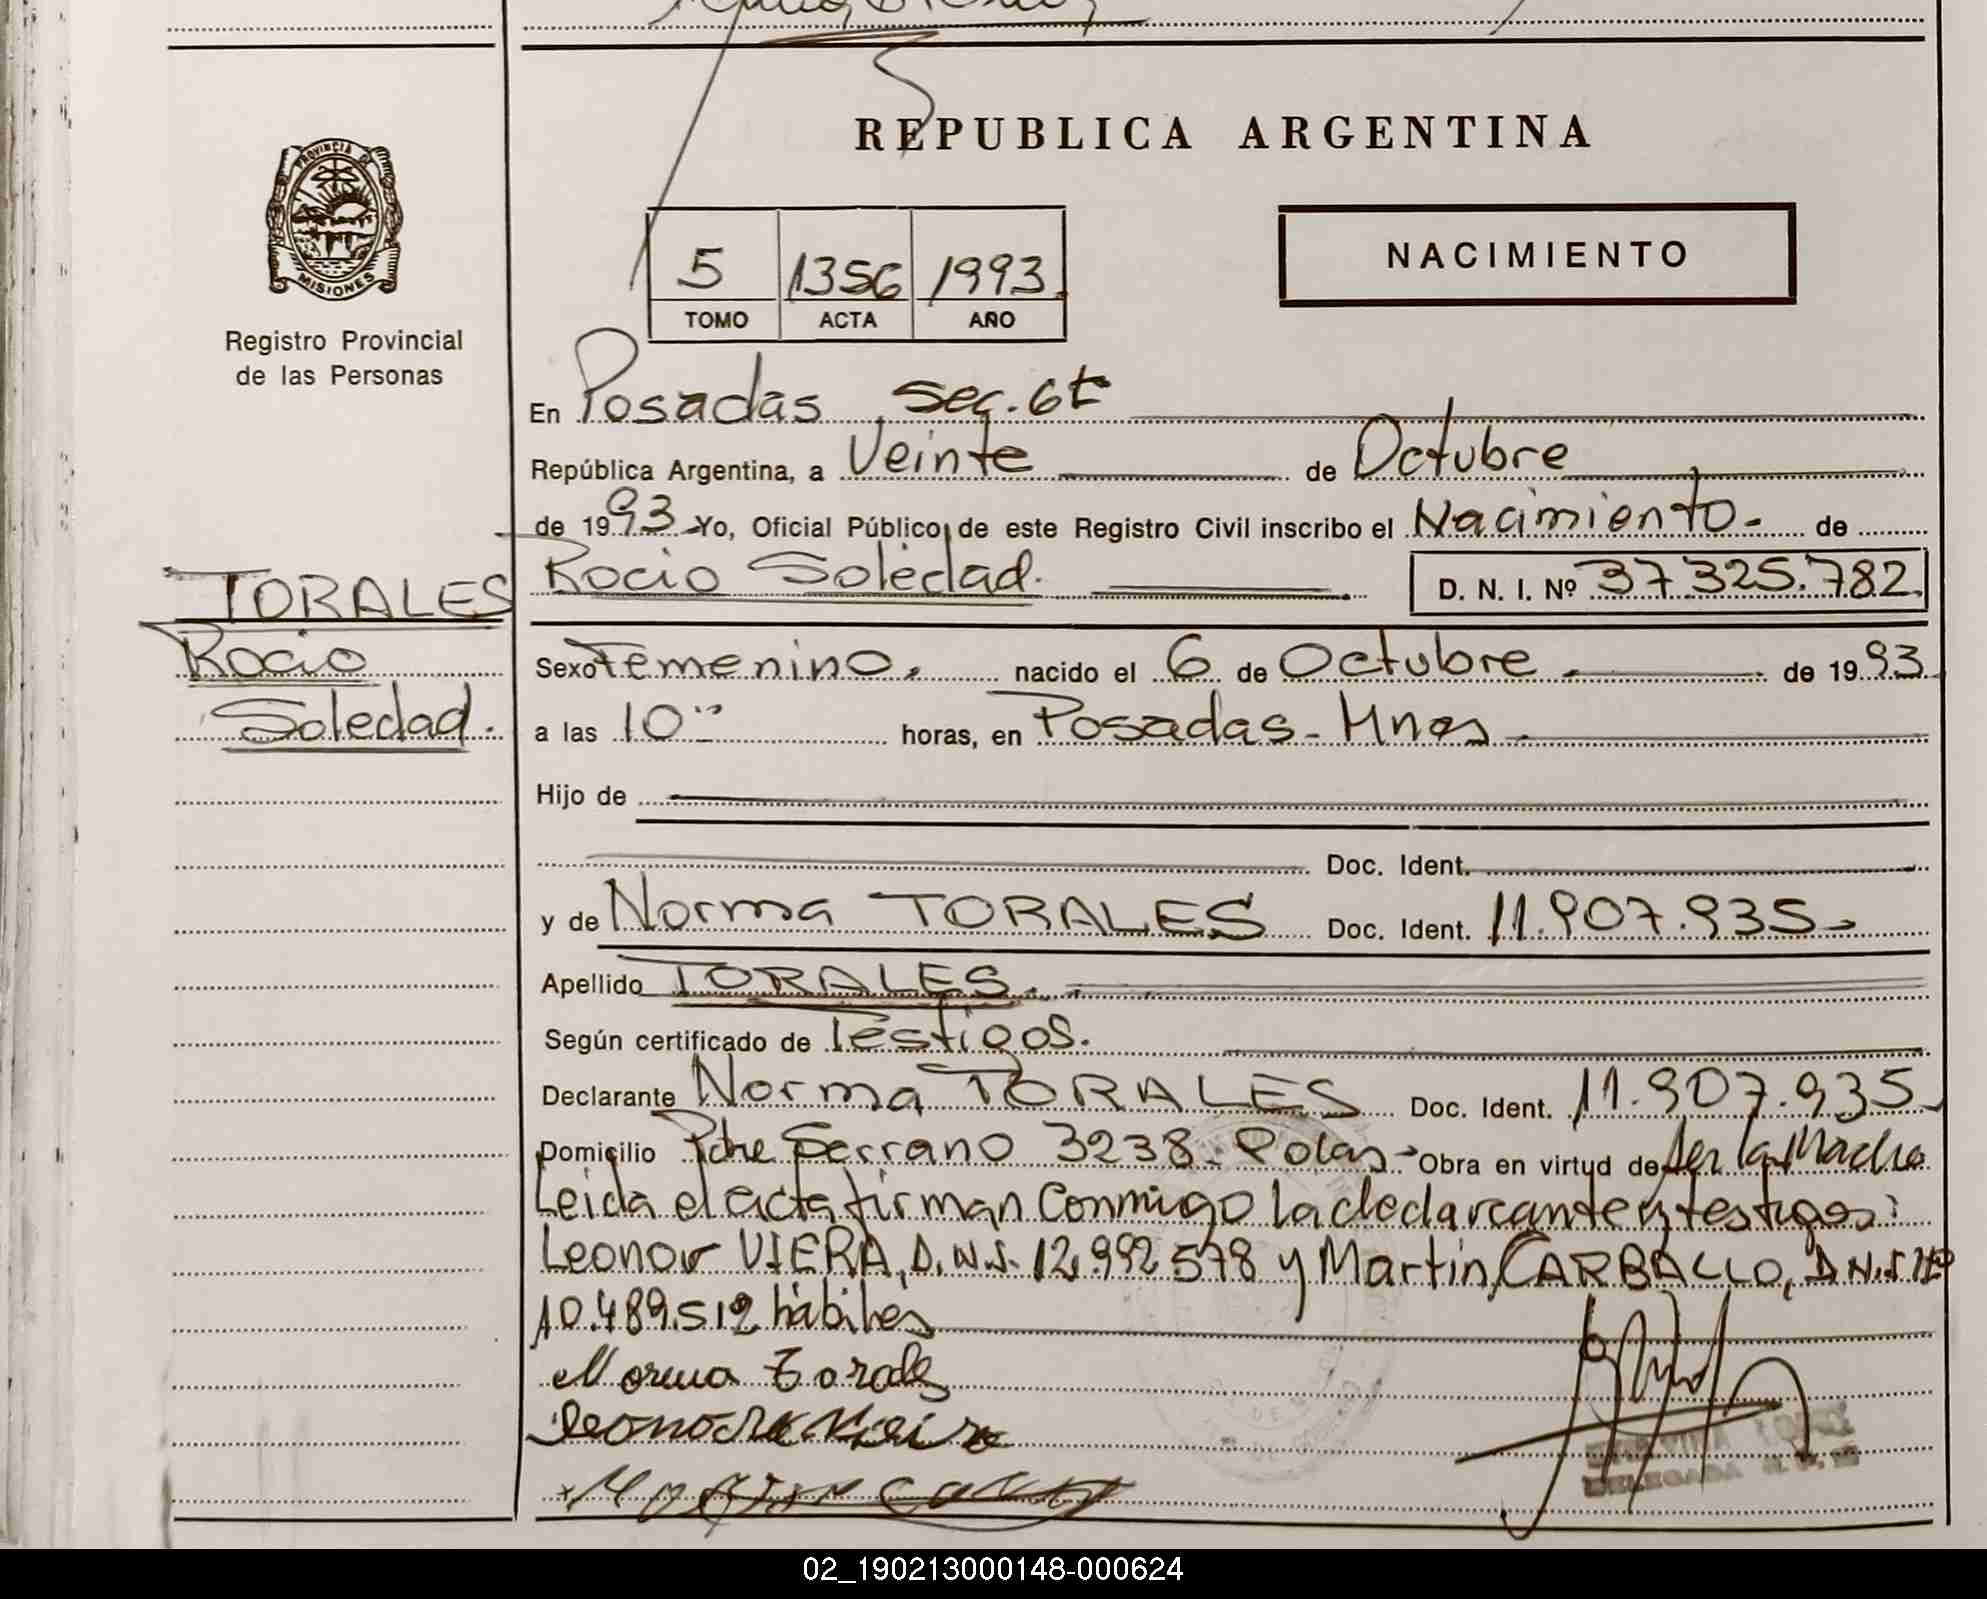 REPUBLICA ARGENTINA
PROVINCIA DE
MISIONES
Registro Provincial
de las Personas
NACIMIENTO
5 1356 1993
TOMO ACTA AÑO
En Posadas Sec. 6t
República Argentina, a Veinte de Octubre
de 1993 Yo, Oficial Público de este Registro Civil inscribo el Nacimiento. de
Rocio Soledad. D. N. I. Nº 37325.782
TORALES
Rocio
Soledad.
Sexo Femenino. nacido el 6 de Octubre de 1993
a las 10 horas, en Posadas - Mnes
Hijo de
Doc. Ident.
y de Norma TORALES Doc. Ident. 11.907.935
Apellido TORALES.
Según certificado de Testigos.
Declarante Norma TORALES Doc. Ident. 11.907.935
Domicilio Pche Serrano 3238 - Pdas - Obra en virtud de Ser la Madre
Leida el acta firman conmigo la declarante y testigos:
Leonor VIERA, D.N.I. 12.992578 y Martin CARBALLO, D N.I. Nº
10.489.512 hábiles
Norma Torales
DELEGADA
02_190213000148-000624